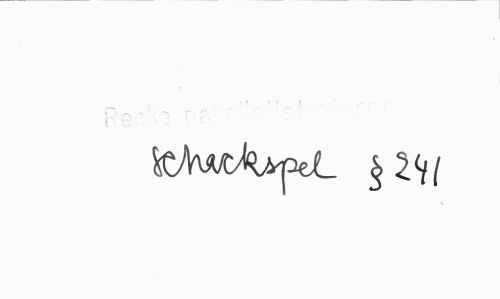 Recke parallellstroferna
schackspel § 241